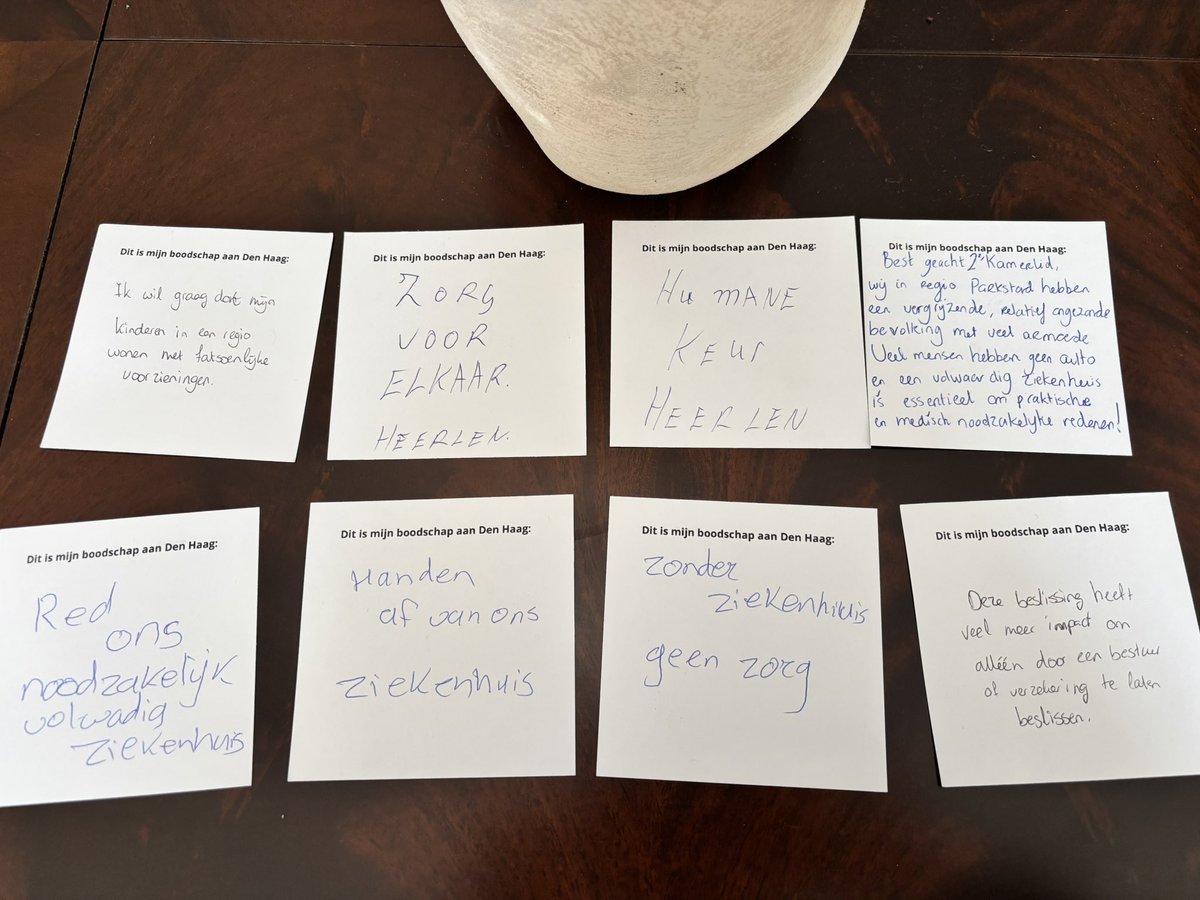 Dit is mijn boodschap aan Den Haag:
Ik wil graag dat mijn
kinderen in een regio
wonen met fatsoenlijke
voorzieningen.
Dit is mijn boodschap aan Den Haag:
ZORG
VOOR
ELKAAR.
HEERLEN.
Dit is mijn boodschap aan Den Haag:
HUMANE
KEUr
HEERLEN
Dit is mijn boodschap aan Den Haag:
Best geacht 2e Kamerlid,
wij in regio Parkstad hebben
een vergrijzende, relatief ongezonde
bevolking met veel armoede
Veel mensen hebben geen auto
en een volwaardig ziekenhuis
is essentieel om praktische
en medisch noodzakelijke redenen!
Dit is mijn boodschap aan Den Haag:
Red
ons
noodzakelijk
volwadig
ziekenhuis
Dit is mijn boodschap aan Den Haag:
Handen
af van ons
ziekenhuis
Dit is mijn boodschap aan Den Haag:
zonder
ziekenhuis
geen zorg
Dit is mijn boodschap aan Den Haag:
Deze beslissing heeft
veel meer impact om
alléén door een bestuur
of verzekering te laten
beslissen.